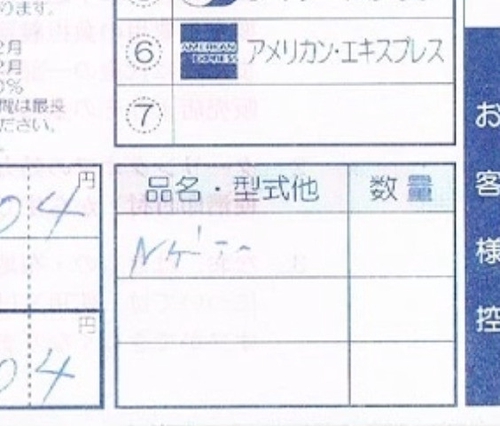 ります。
2月
2月
0%
間は最長
ださい。
⑥ AMERICAN EXPRESS アメリカン・エキスプレス
⑦
円
04
円
04
品名・型式他 数量
お客様控